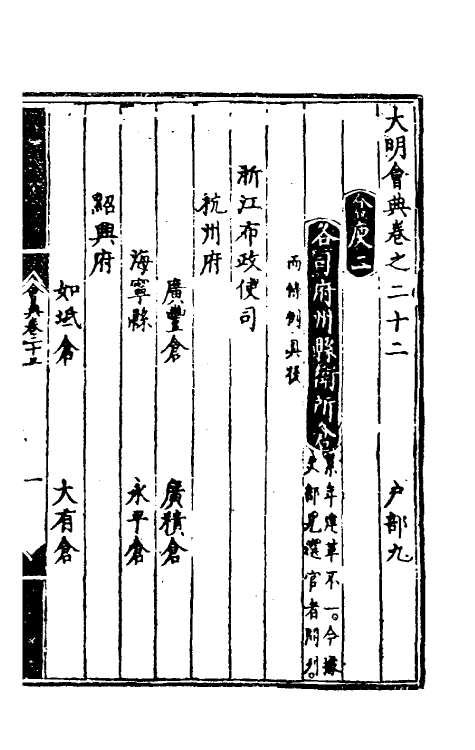 大明會典卷之二十二 戶部九
倉庾二
各司府州縣衛所倉 累年建革不一。今據
吏部見選官者開列。
而條例具後
浙江布政使司
杭州府
廣豐倉 廣積倉
海寧縣 永平倉
紹興府
如坻倉 大有倉
會典卷二十二 一